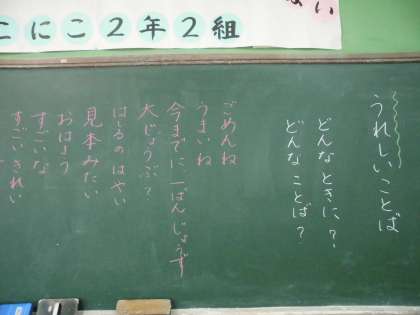 こにこ2年2組
うれしいことば
どんなときに?
どんなことば?
ごめんね
うまいね
今までに一ばんじょうず
大じょうぶ?
はしるのはやい
見本みたい
おはよう
すごいな
すごいきれい